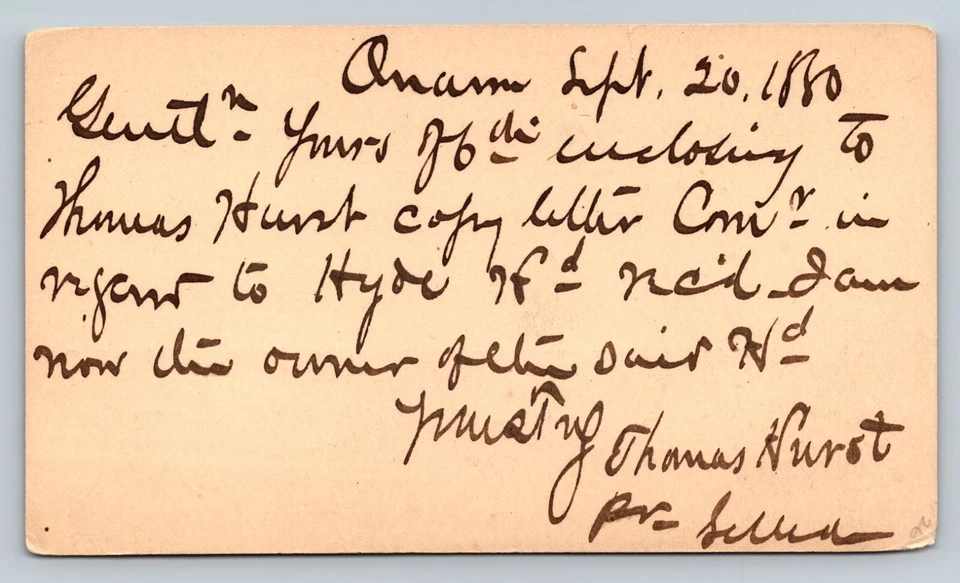 Sept. 20, 1880
Gentln Yours of 6th inclosing to
Thomas Hurst copy letter Comr in
regard to Hyde Hd rec'd. I am
now the owner of the said Hd
yours Try
Thomas Hurst
pr